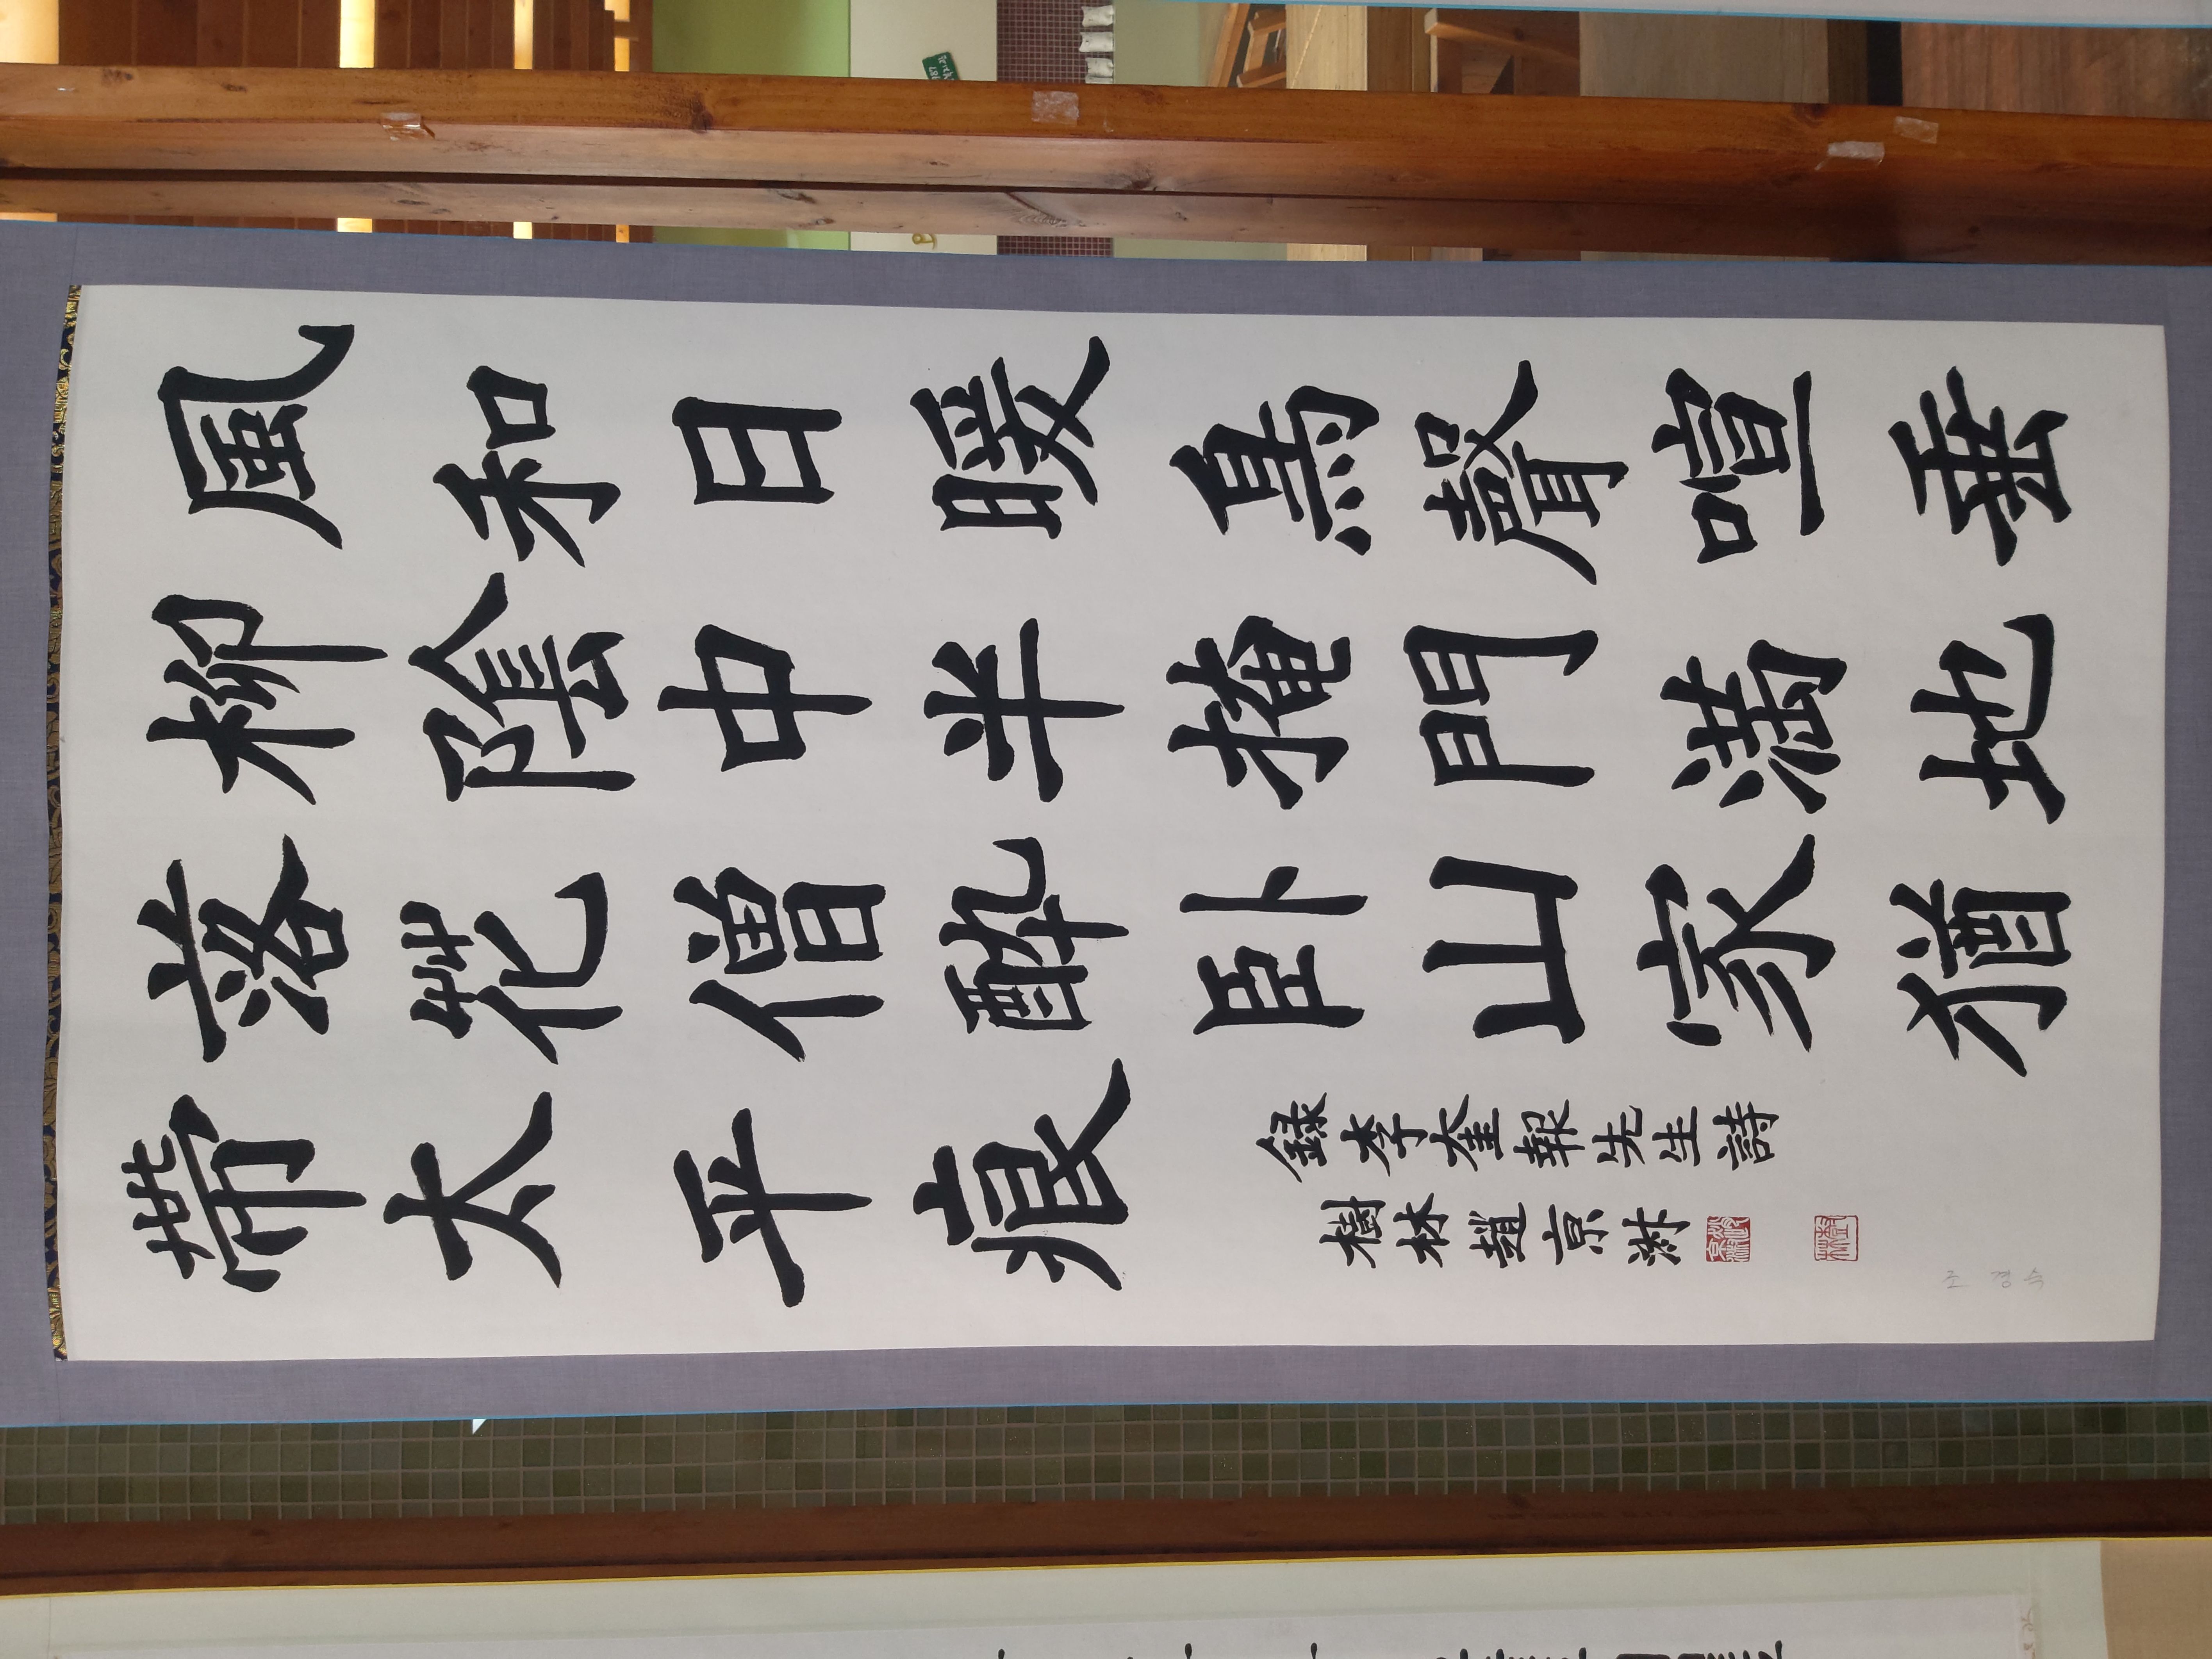 風和日暖鳥聲喧垂
柳陰中半掩門滿地
落花僧酔臥山家猶
帶太平痕
錄李奎報先生詩
樹林趙京淑
조경숙